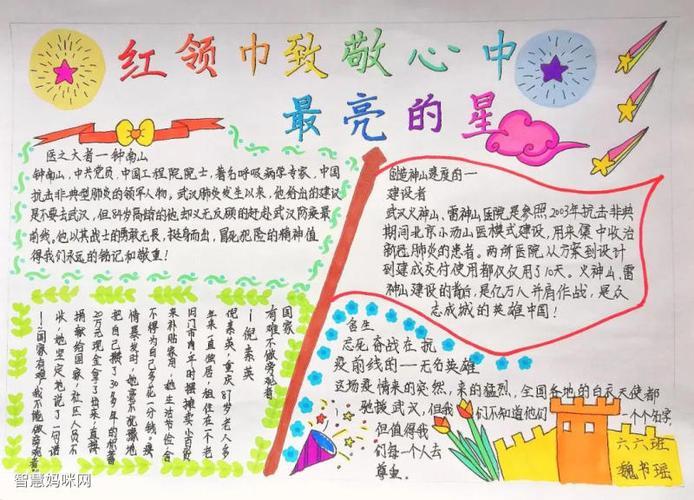 红领巾致敬心中
最亮的星
医之大者一钟南山
钟南山,中共党员,中国工程院院士,著名呼吸病学专家,中国
抗击非典型肺炎的领军人物。武汉肺炎发生以来,他给出的建议
是不要去武汉,但84岁高龄的他却义无反顾的赶赴武汉防疫最
前线。他以其战士的勇敢无畏,挺身而出,冒死犯险的精神值
得我们永远的铭记和敬重!
创造神山速度的一
建设者
武汉火神山、雷神山医院是参照2003年抗击非典
期间北京小汤山医模式建设,用来集中收治
新冠肺炎的患者。两所医院从方案到设计
到建成交付使用都仅仅用了10天。火神山、雷
神山建设的背后,是亿万人并肩作战,是众
志成城的英雄中国!
国家
有难不做旁观者
—倪素英
倪素英,重庆87岁老人多
年来一直独居,租住在个老
旧门市内,平时摆摊卖小百货
来补贴家用,她生活节俭,舍
不得为自己多花一分钱。疫
情暴发时,她毫不犹豫地
把自己攒了30多年的积蓄
20万元现金拿了出来,直接
捐献给国家,社区人员不
收,她坚定地说了一句话
:国家有难,我不能做旁观者。
舍生
忘死奋战在抗
疫前线的一无名英雄
这场疫情来的突然,来的猛烈,全国各地的白衣天使都
驰援武汉,但我们不知道他们一个个名字,
但值得我
们每个人去
尊重。
六六班
魏书瑶
智慧妈咪网